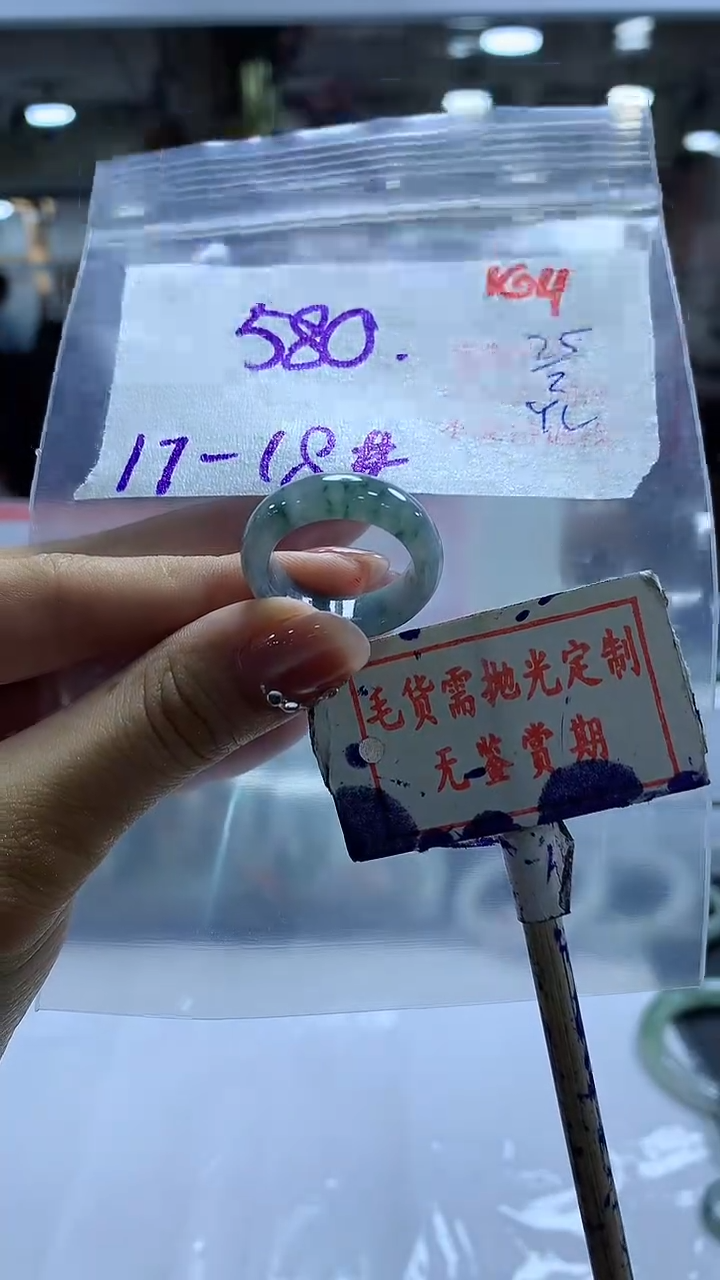 580.
KG4
25/2
YL
17-18#
毛货需抛光定制
无鉴赏期